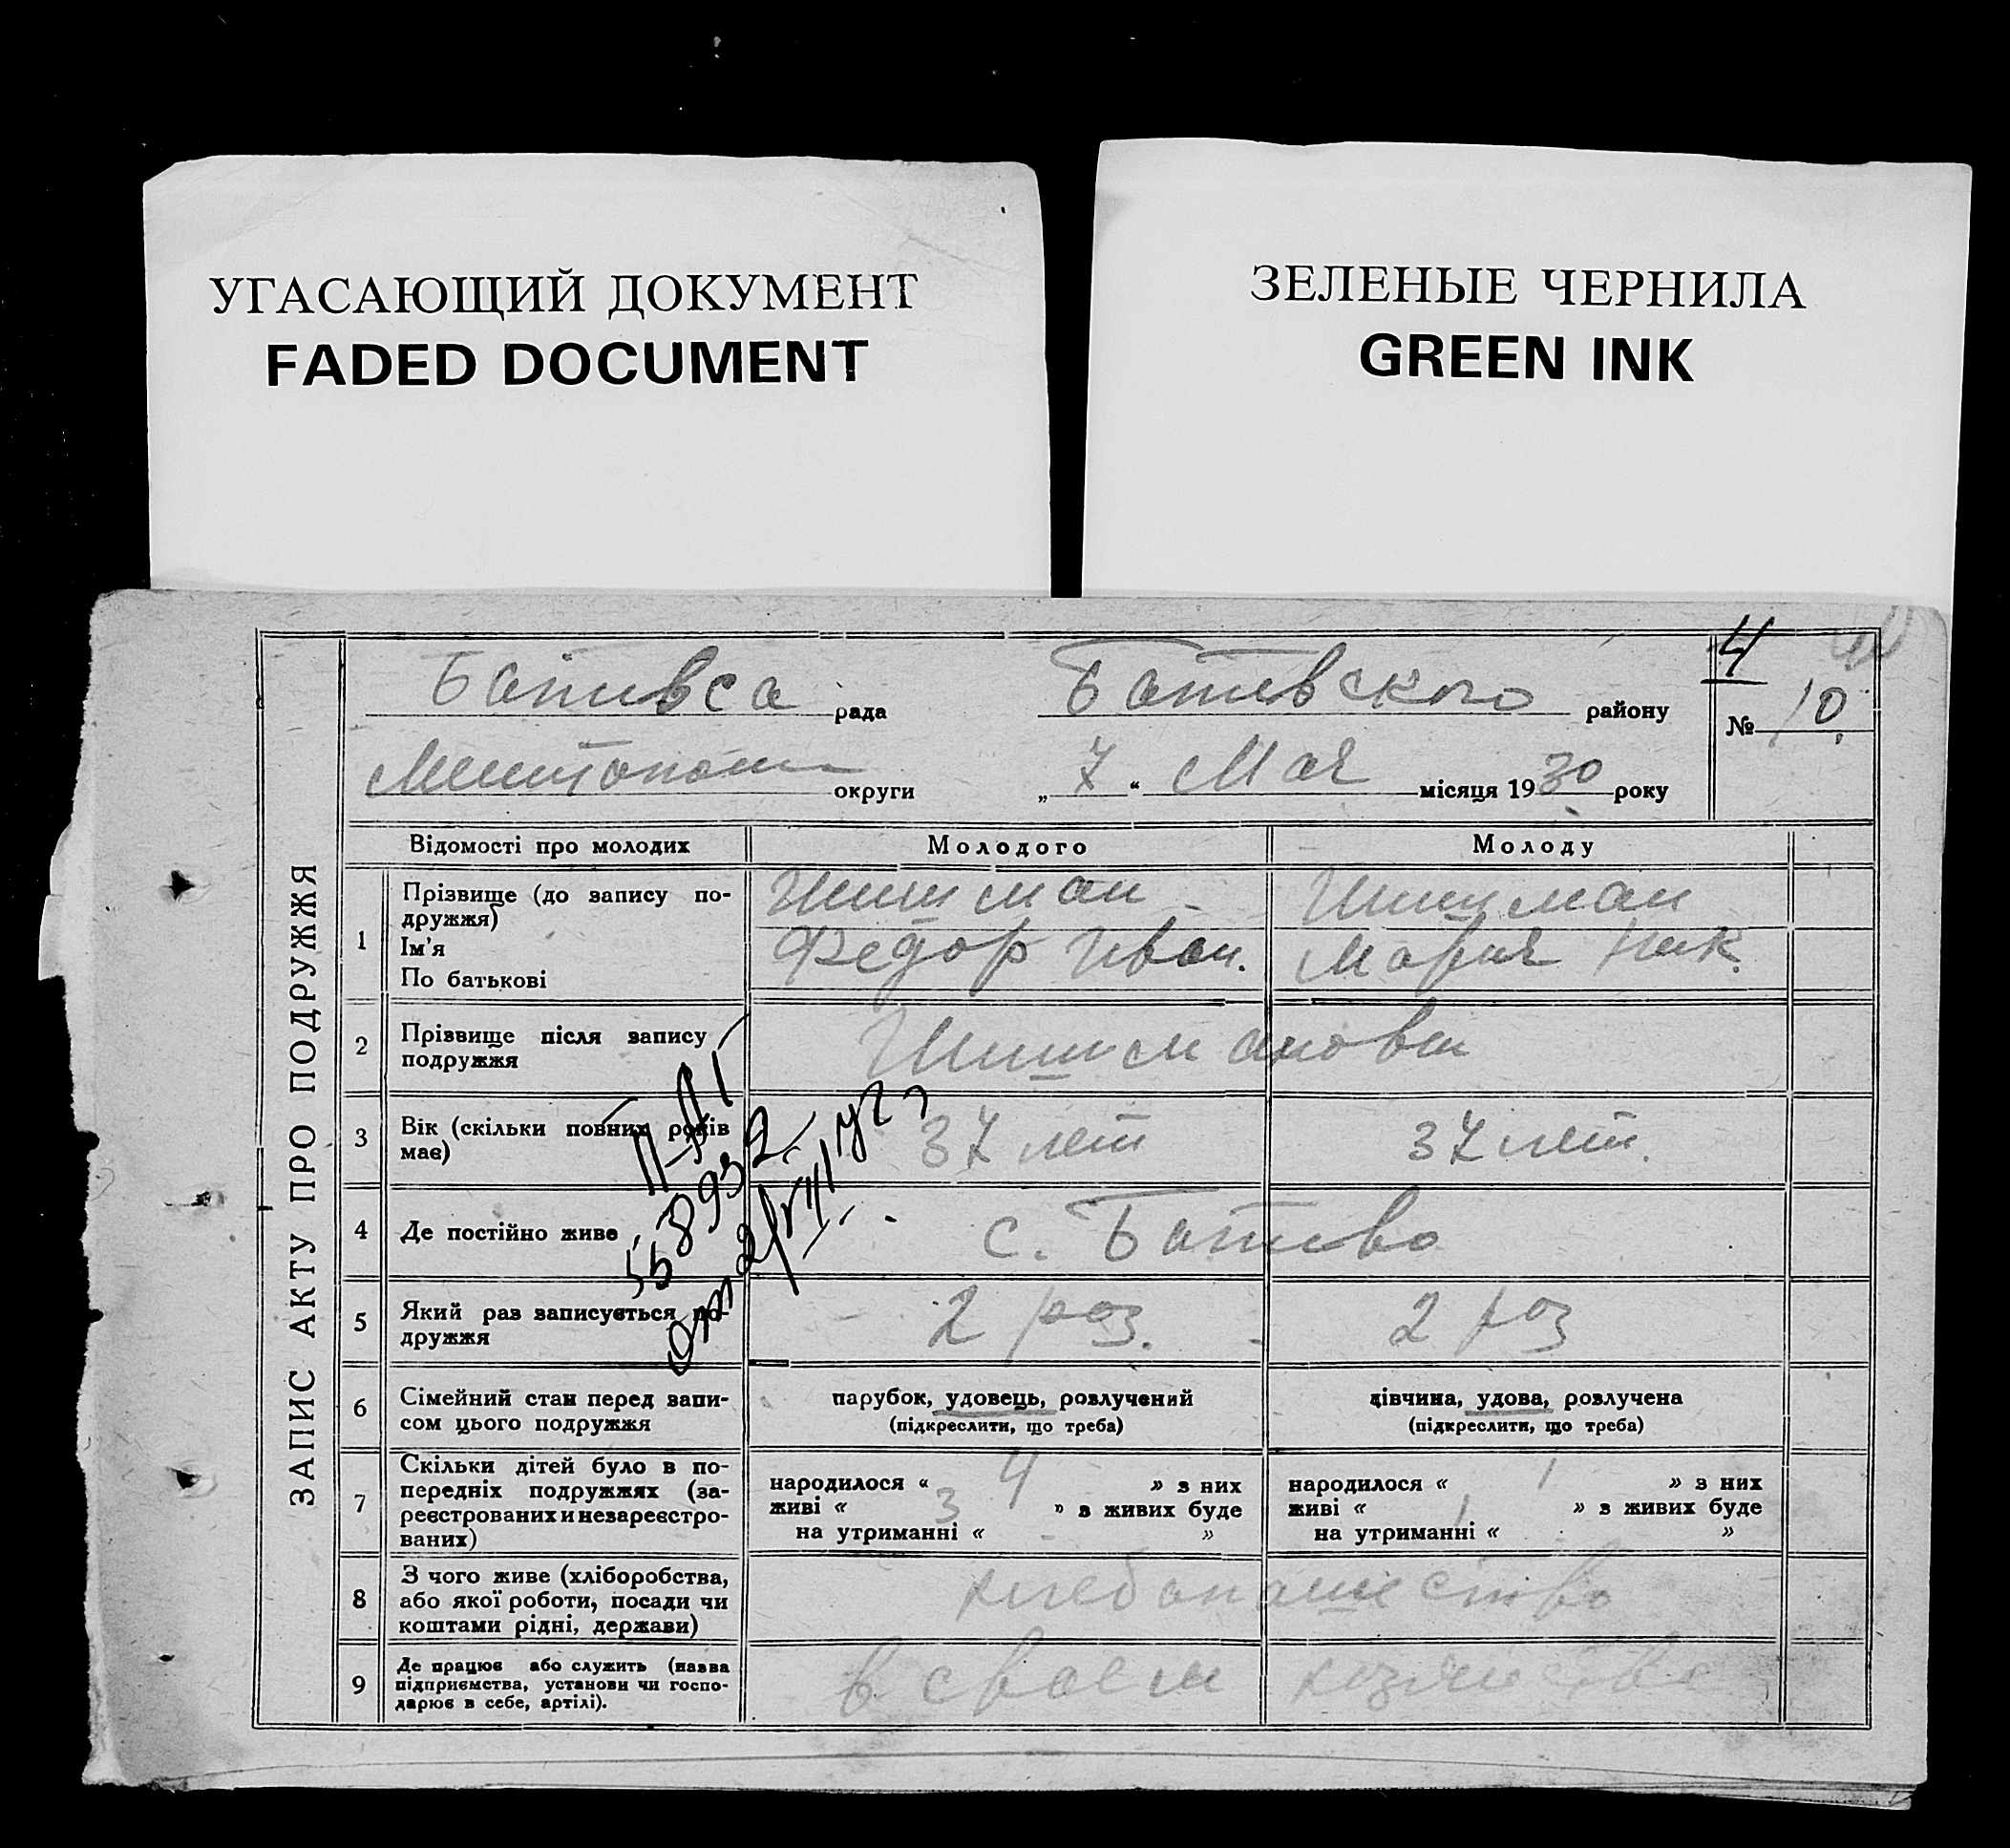 УГАСАЮЩИЙ ДОКУМЕНТ
FADED DOCUMENT
ЗЕЛЕНЫЕ ЧЕРНИЛА
GREEN INK
4
рада
района
№ 10
округи
„ 7 “ Мая місяця 1930 року
ЗАПИС АКТУ ПРО ПОДРУЖЖЯ
Відомості про молодих
Молодого
Молоду
1
Прізвище (до запису по-
дружжя)
Ім'я
По батькові
Шишман
Федор Иван.
Шишман
Мария Ник.
2
Прізвище після запису
подружжя
Шишмановы
3
Вік (скільки повних років
має)
37 лет
37 лет.
4
Де постійно живе
с. Ботиево
5
Який раз записується по-
дружжя
2 раз.
2 раз
6
Сімейний стан перед запи-
сом цього подружжя
парубок, удовець, розлучений
(підкреслити, що треба)
дівчина, удова, розлучена
(підкреслити, що треба)
7
Скільки дітей було в по-
передніх подружжях (за-
реєстрованих и незареєстро-
ваних)
народилося « 4 » з них
живі « 3 » з живих буде
на утриманні « - »
народилося « 1 » з них
живі « 1 » з живих буде
на утриманні « »
8
З чого живе (хліборобства,
або якої роботи, посади чи
коштами рідні, держави)
хлебопашество
9
Де працює або служить (назва
підприємства, установи чи госпо-
дарює в себе, артілі).
в своем хозяйстве